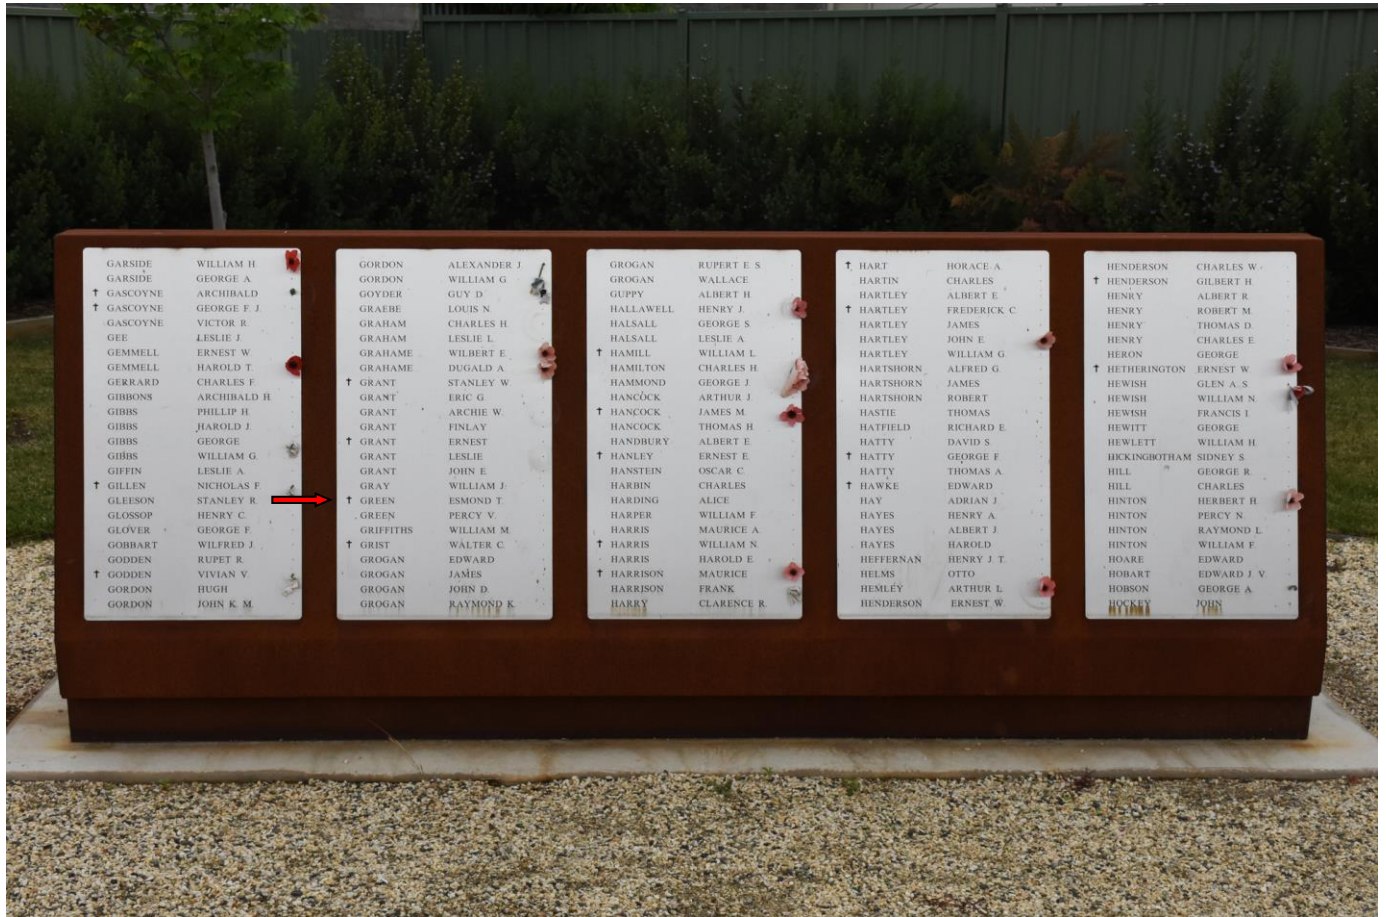 GARSIDE WILLIAM H.
GARSIDE GEORGE A.
† GASCOYNE ARCHIBALD
† GASCOYNE GEORGE F. J.
GASCOYNE VICTOR R.
GEE LESLIE J.
GEMMELL ERNEST W.
GEMMELL HAROLD T.
GERRARD CHARLES F.
GIBBONS ARCHIBALD H.
GIBBS PHILLIP H.
GIBBS HAROLD J.
GIBBS GEORGE
GIBBS WILLIAM G.
GIFFIN LESLIE A.
† GILLEN NICHOLAS F.
GLEESON STANLEY R.
GLOSSOP HENRY C.
GLOVER GEORGE F.
GOBBART WILFRED J.
GODDEN RUPET R.
† GODDEN VIVIAN V.
GORDON HUGH
GORDON JOHN K. M.
GORDON ALEXANDER J.
GORDON WILLIAM G.
GOYDER GUY D.
GRAEBE LOUIS N.
GRAHAM CHARLES H.
GRAHAM LESLIE L.
GRAHAME WILBERT E.
GRAHAME DUGALD A.
† GRANT STANLEY W.
GRANT ERIC G.
GRANT ARCHIE W.
GRANT FINLAY
† GRANT ERNEST
GRANT LESLIE
GRANT JOHN E.
GRAY WILLIAM J.
† GREEN ESMOND T.
GREEN PERCY V.
GRIFFITHS WILLIAM M.
† GRIST WALTER C.
GROGAN EDWARD
GROGAN JAMES
GROGAN JOHN D.
GROGAN RAYMOND K.
GROGAN RUPERT E. S.
GROGAN WALLACE
GUPPY ALBERT H.
HALLAWELL HENRY J.
HALSALL GEORGE S.
HALSALL LESLIE A.
† HAMILL WILLIAM L.
HAMILTON CHARLES H.
HAMMOND GEORGE J.
HANCOCK ARTHUR J.
† HANCOCK JAMES M.
HANCOCK THOMAS H.
HANDBURY ALBERT E.
† HANLEY ERNEST E.
HANSTEIN OSCAR C.
HARBIN CHARLES
HARDING ALICE
HARPER WILLIAM F.
HARRIS MAURICE A.
† HARRIS WILLIAM N.
HARRIS HAROLD E.
† HARRISON MAURICE
HARRISON FRANK
HARRY CLARENCE R.
† HART HORACE A.
HARTIN CHARLES
HARTLEY ALBERT E.
† HARTLEY FREDERICK C.
HARTLEY JAMES
HARTLEY JOHN E.
HARTLEY WILLIAM G.
HARTSHORN ALFRED G.
HARTSHORN JAMES
HARTSHORN ROBERT
HASTIE THOMAS
HATFIELD RICHARD E.
HATTY DAVID S.
† HATTY GEORGE F.
HATTY THOMAS A.
† HAWKE EDWARD
HAY ADRIAN J.
HAYES HENRY A.
HAYES ALBERT J.
HAYES HAROLD
HEFFERNAN HENRY J. T.
HELMS OTTO
HEMLEY ARTHUR L.
HENDERSON ERNEST W.
HENDERSON CHARLES W.
† HENDERSON GILBERT H.
HENRY ALBERT R.
HENRY ROBERT M.
HENRY THOMAS D.
HENRY CHARLES E.
HERON GEORGE
† HETHERINGTON ERNEST W.
HEWISH GLEN A. S.
HEWISH WILLIAM N.
HEWISH FRANCIS I.
HEWITT GEORGE
HEWLETT WILLIAM H.
HICKINGBOTHAM SIDNEY S.
HILL GEORGE R.
HILL CHARLES
HINTON HERBERT H.
HINTON PERCY N.
HINTON RAYMOND L.
HINTON WILLIAM F.
HOARE EDWARD
HOBART EDWARD J. V.
HOBSON GEORGE A.
HOCKEY JOHN